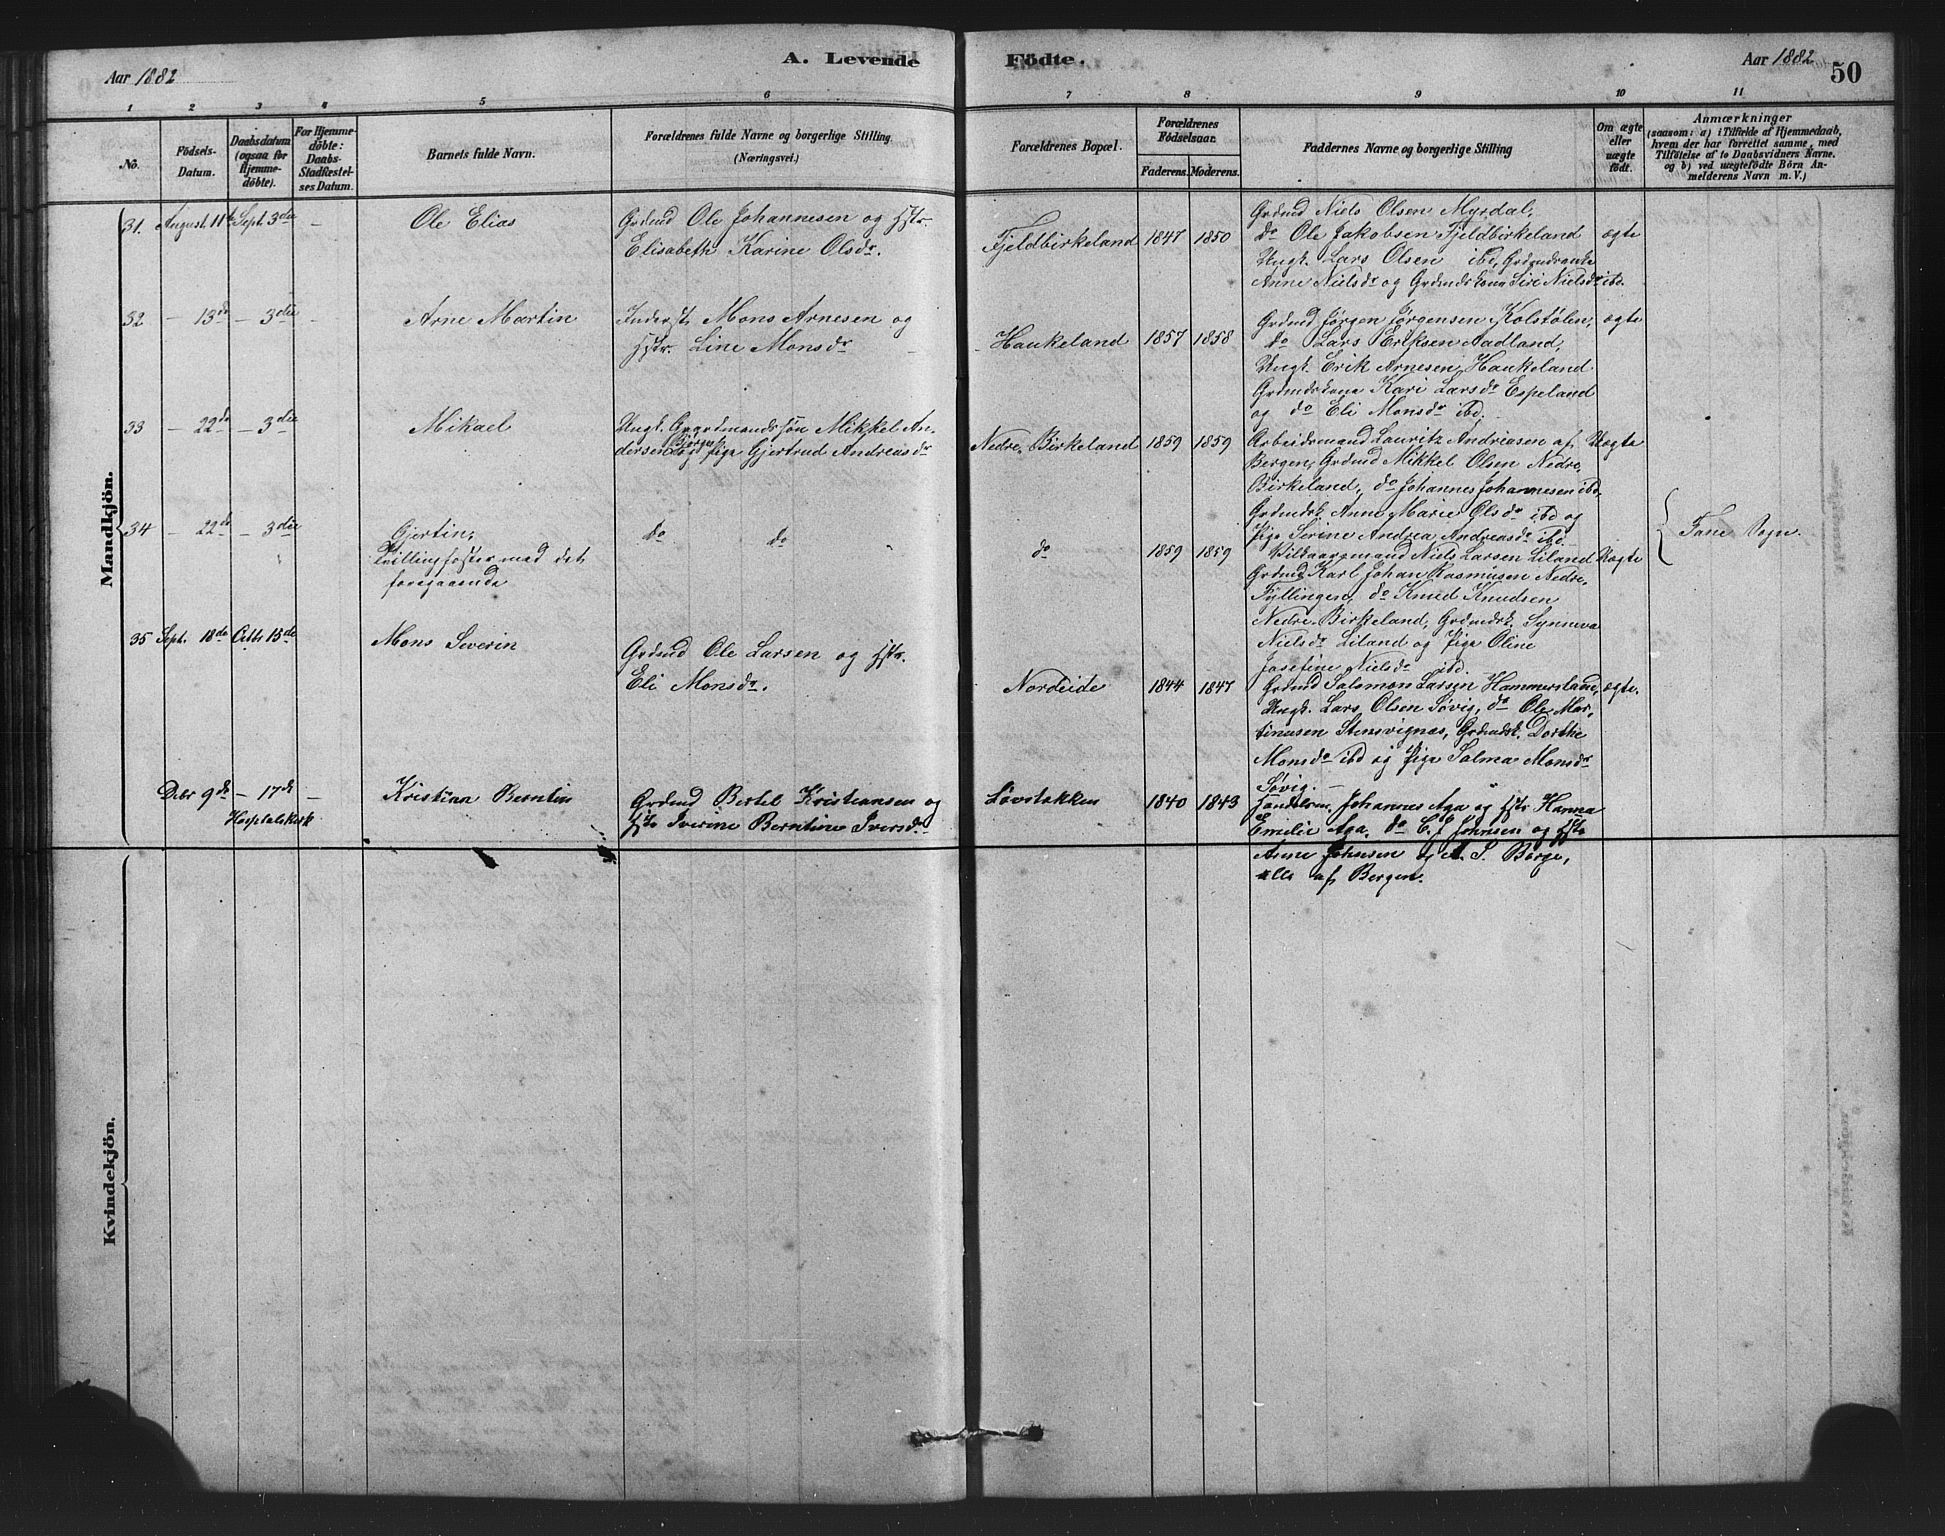 Aar 1882
A. Levende
Födte.
Aar 1882
50
1 2 3 4 5 6 7 8 9 10 11
No.
Födsels-
Datum.
Daabsdatum
(ogsaa for
Hjemme-
döbte).
For Hjemme-
döbte:
Daabs-
Stadfæstel-
ses Datum.
Barnets fulde Navn.
Forældrenes fulde Navne og borgerlige Stilling.
(Næringsvei.)
Forældrenes Bopæl.
Forældrenes
Födselsaar.
Faderens. Moderens.
Faddernes Navne og borgerlige Stilling
Om ægte
eller
uægte
födt.
Anmærkninger
(saasom: a) i Tilfælde af Hjemmedaab,
hvem der har forrettet samme, med
Tilföielse af to Daabsvidners Navne.
og b) ved uægtefödte Börn An-
melderens Navn m. V.)
Mandkjön.
31. August 11te Sept. 3die -
Ole Elias
Grdmd Ole Johannesen og Hstr.
Elisabeth Karine Olsdr.
Fjeldbirkeland 1847 1850
Grdmd Niels Olsen Myrdal,
do Ole Jakobsen Fjeldbirkeland
Ungk. Lars Olsen ibd, Grdmdsenke
Anne Nielsdr og Grdmdskona Siri Nielsdr ibd.
ægte
32 - 13de - 3die -
Arne Martin
Inderst Mons Arnesen og
Hstr. Line Monsdr
Haukeland 1857 1858
Grdmd Jörgen Jörgensen Kolstølen,
do Lars Eriksen Aadland,
Ungk. Erik Arnesen Haukeland
Grdmdskona Kari Larsdr Espeland
og do Eli Monsdr ibd.
ægte
33 - 22de - 3die
Mikael
Ungk. Grdmandssøn Mikkel An-
dersen og Pige Gjertrud Andreasdr
Nedre Birkeland 1859 1859
Arbeidsmand Lauritz Andreasen af
Bergen, Grdmd Mikkel Olsen Nedre
Birkeland, do Johannes Johannesen ibd,
Grdmdsk. Anne Marie Olsdr ibd og
Pige Serine Andrea Andreasdr ibd
Uægte
34 - 22de - 3die
Gjertin,
Tvillingfoster med det
foregaaende
do do
do 1859 1859
Vilkaarsmand Niels Larsen Liland
Grdmd Karl Johan Rasmusen Nedre
Fyllingen, do Knud Knudsen
Nedre Birkeland, Grdmdsk. Synneva
Nielsdr Liland og Pige Oline
Josefine Nielsdr ibd.
Uægte
Fane Sogn.
35 Sept. 18de Octbr 15de
Mons Severin
Grdmd Ole Larsen og Hstr.
Eli Monsdr.
Nordeide 1844 1847
Grdmd Salomon Larsen Hammersland,
Ungk. Lars Olsen Søvig, do Ole Mar-
tinusen Stensvignæs, Grdmdsk. Dorthe
Monsdr ibd og Pige Salma Monsdr
Søvig.
ægte.
Debr 9de - 17de -
Hospitalskirk
Kristian Berntin
Grdmd Bertel Kristiansen og
Hstr Iverine Berntine Iversdr
Løvstakken 1840 1843
Handelsm. Johannes Aga og Hstr Hanna
Emilie Aga, do C. J. Johnsen og Hstr
Anne Johnsen og A. S. Børge,
alle af Bergen.
Kvindekjön.